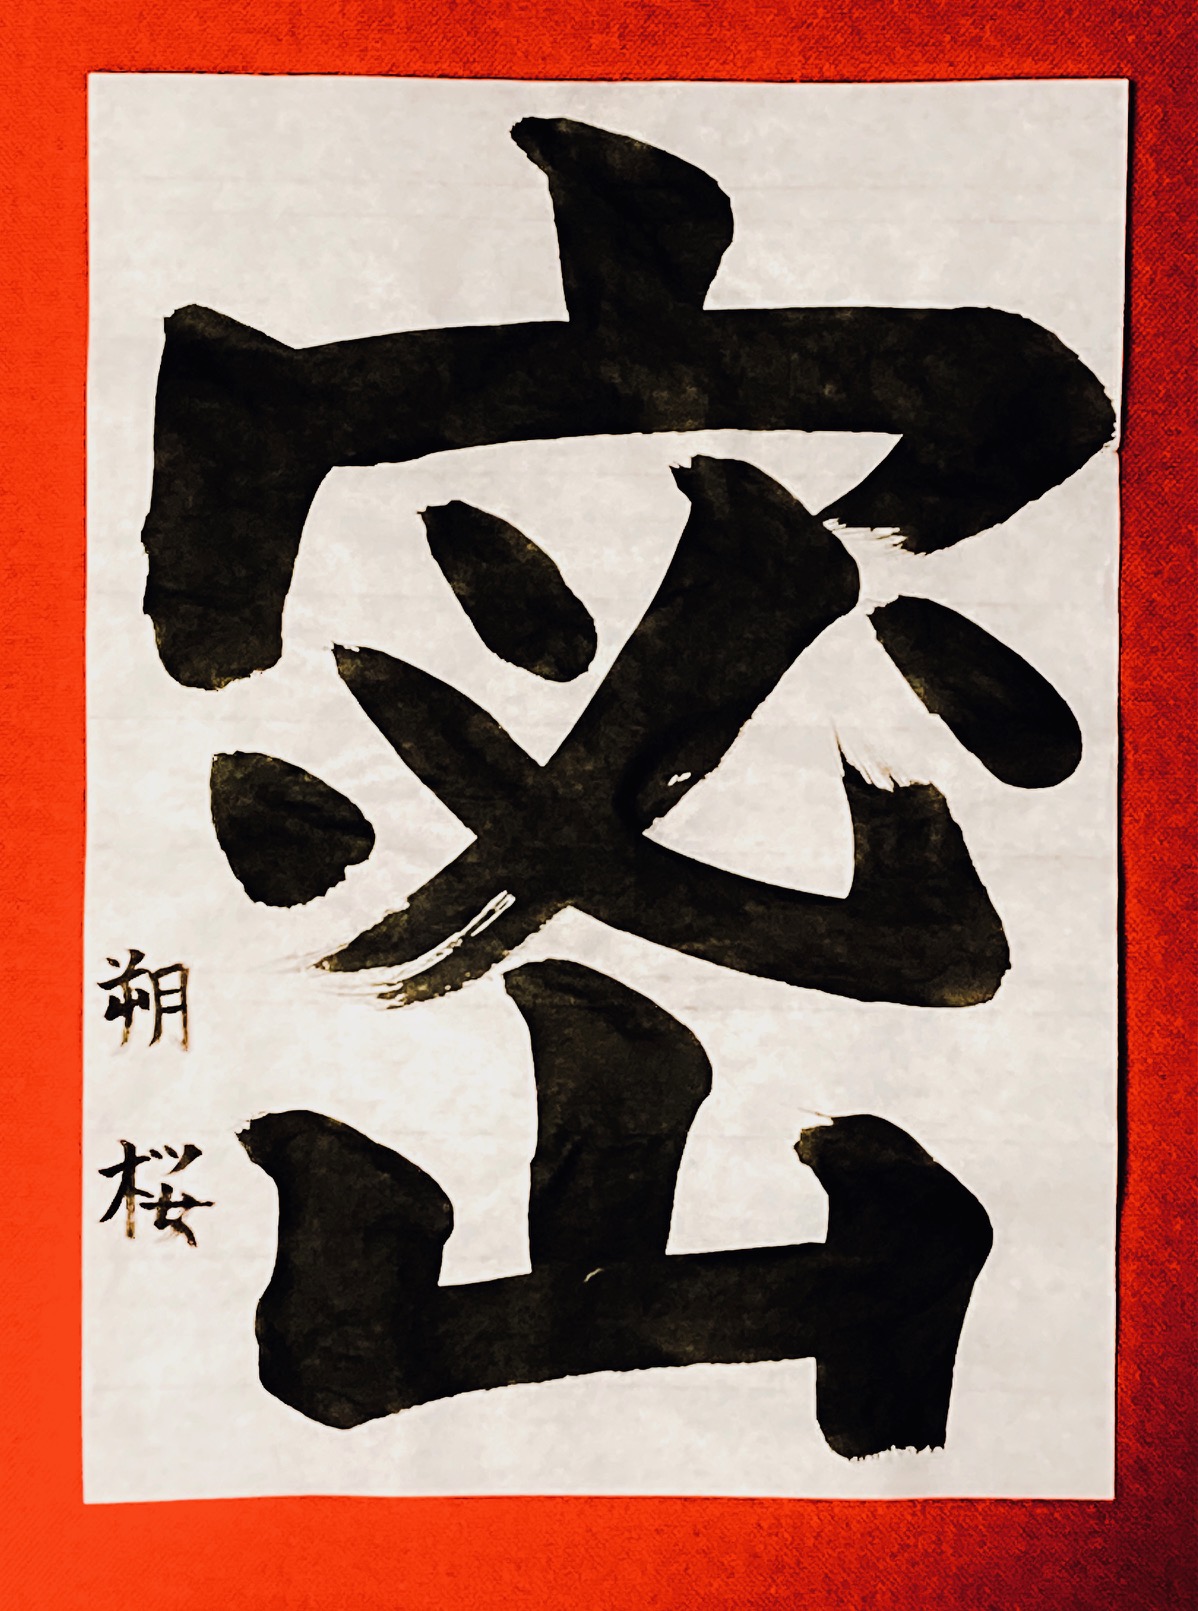 密
朔桜